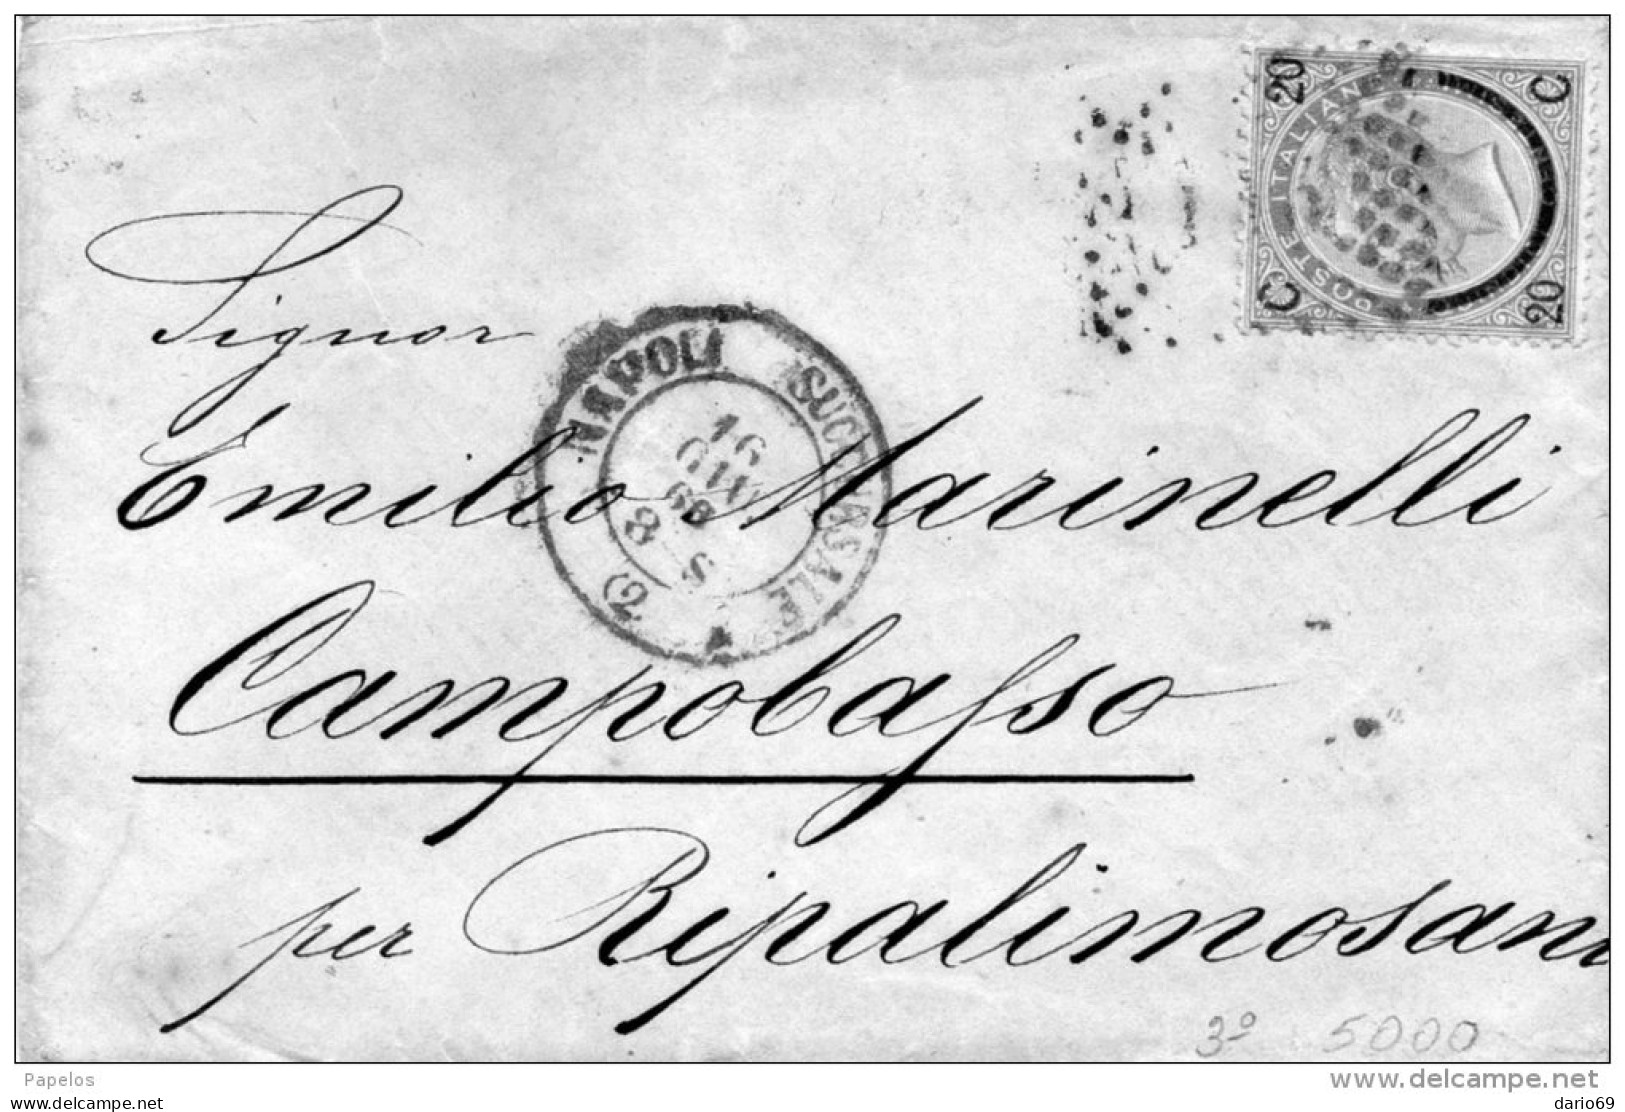 20 C
POSTE ITALIANE
C 20
Signor
NAPOLI SUCCURSALE (2
16
GIU
68
8 S
Emilio Marinelli
Campobasso
per Ripalimosan
3º 5000
Papelos
www.delcampe.net
www.delcampe.net
dario69